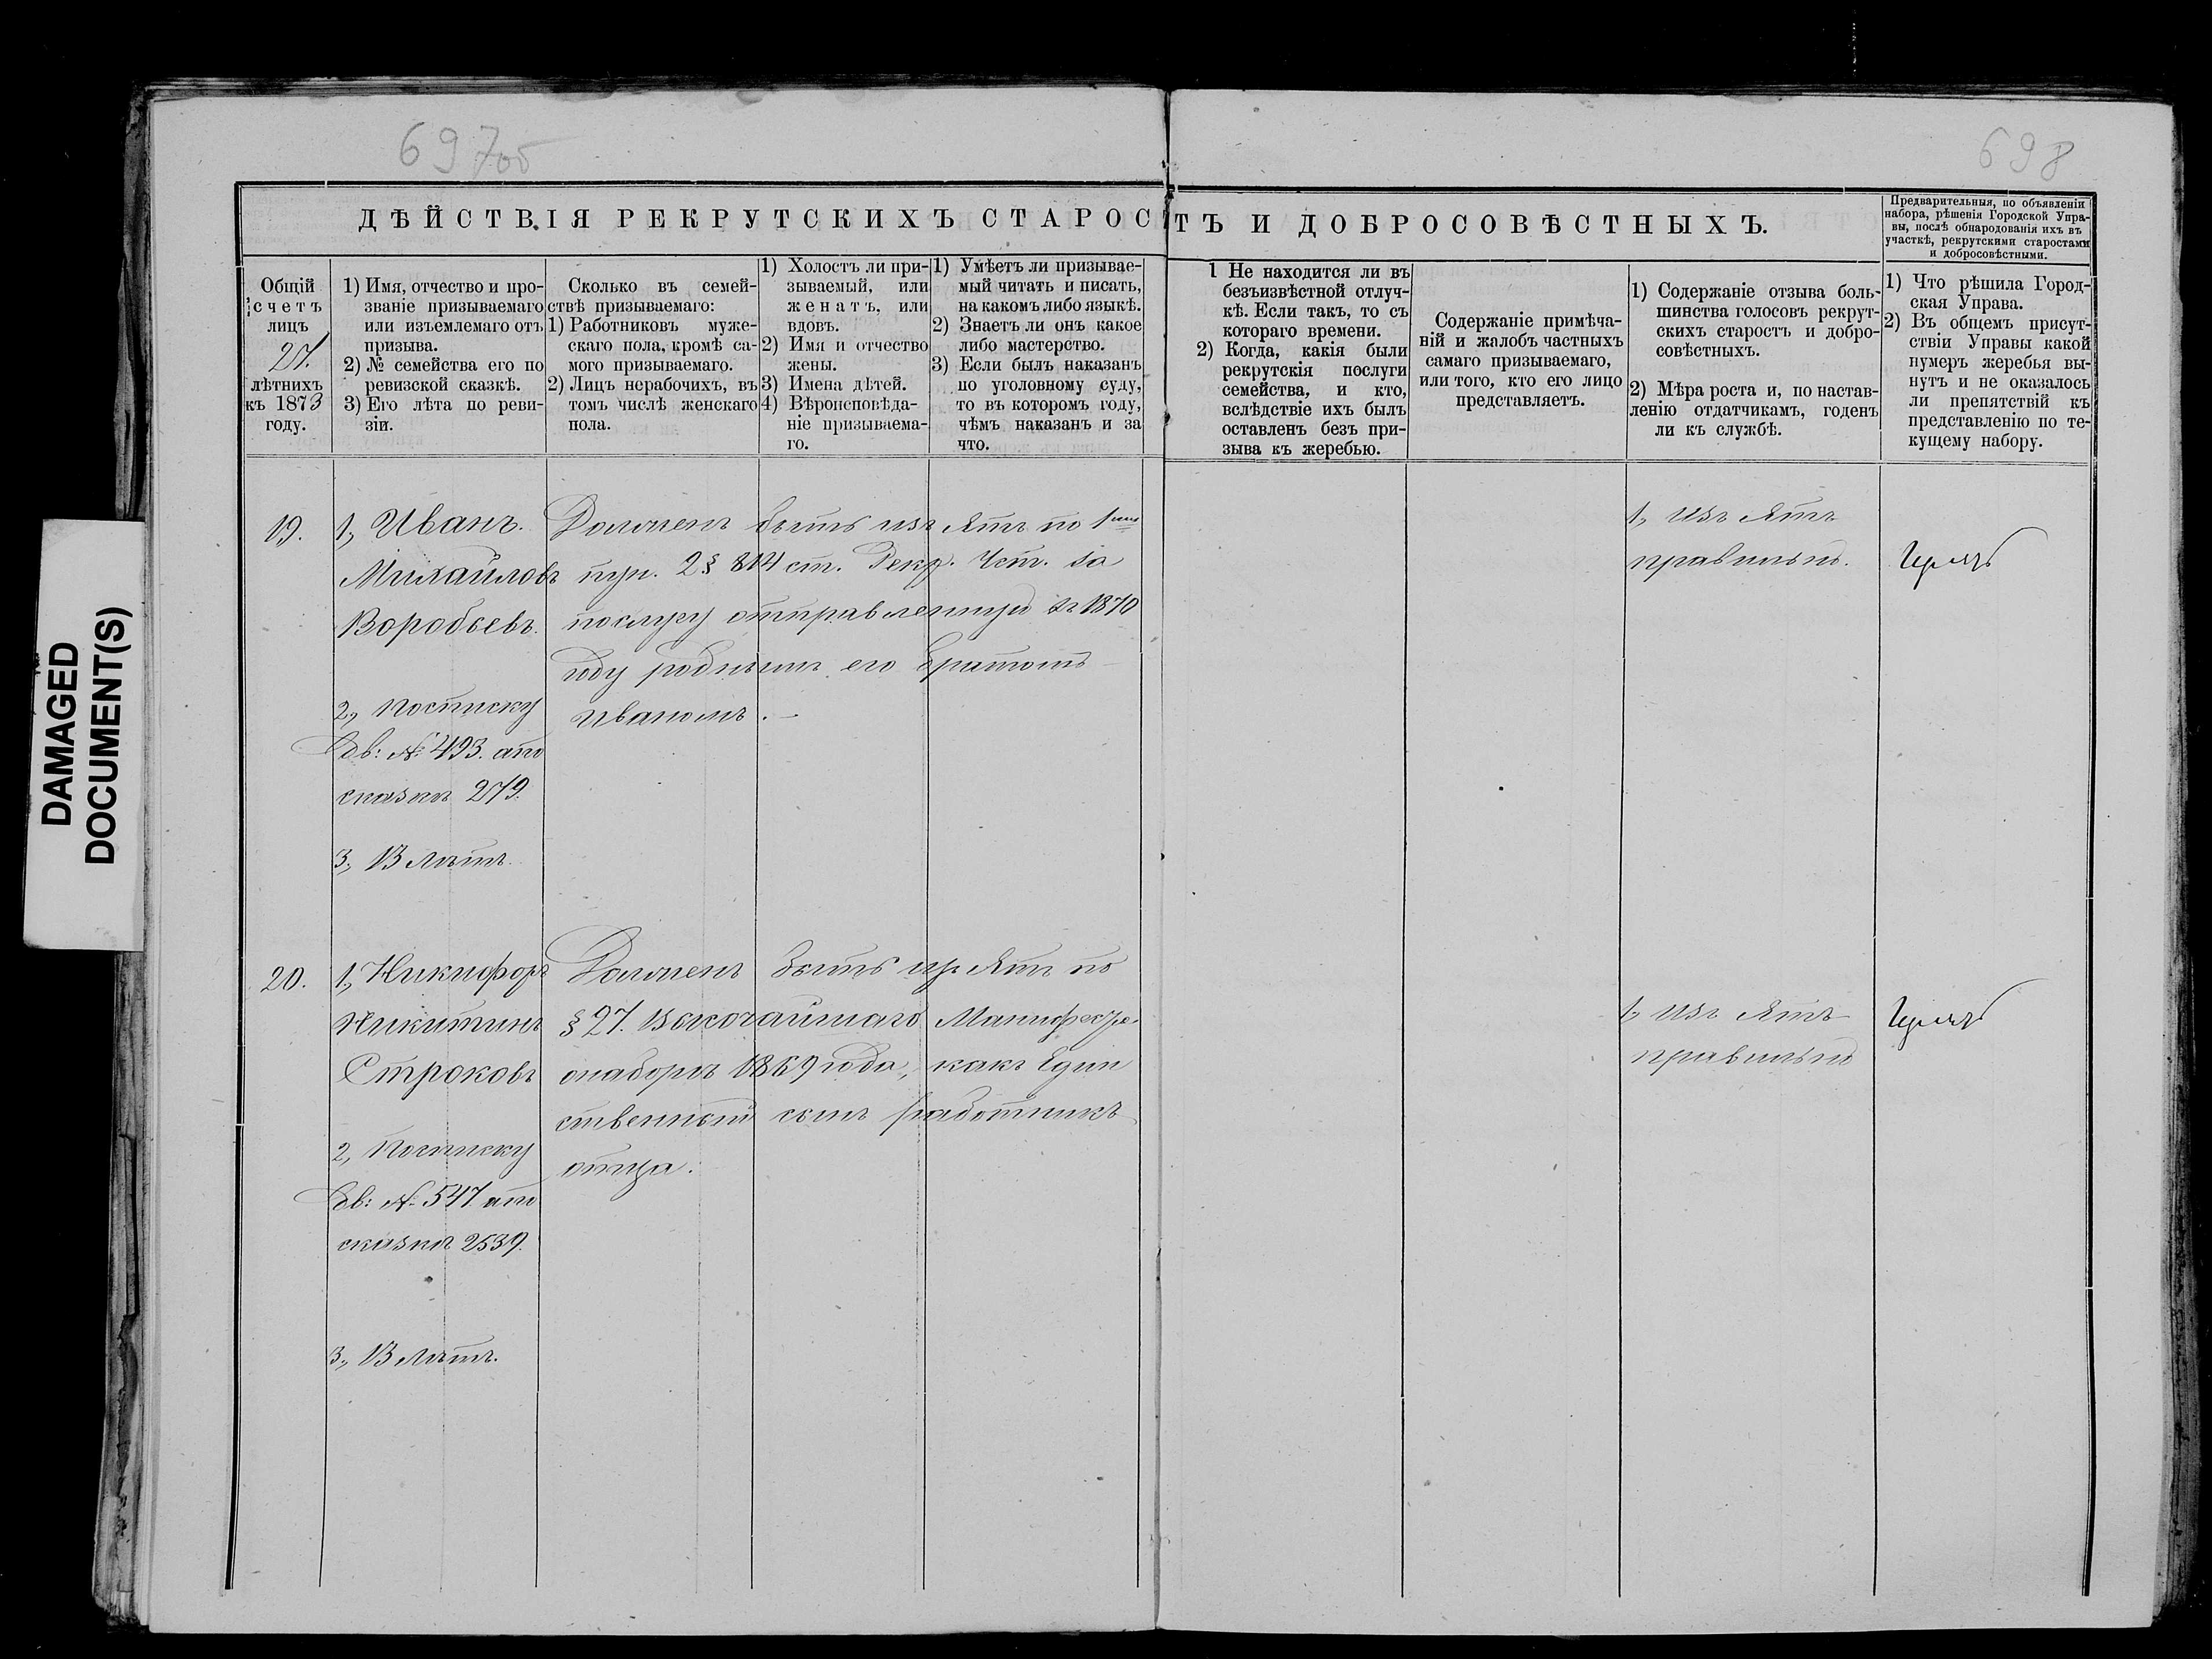 697об
698
ДѢЙСТВІЯ РЕКРУТСКИХЪ СТАРОСТЪ И ДОБРОСОВѢСТНЫХЪ.
Предварительныя, по объявленіи
набора, рѣшенія Городской Упра-
вы, послѣ обнародованія ихъ въ
участкѣ, рекрутскими старостами
и добросовѣстными.
Общій
счетъ
лицъ
27.
лѣтнихъ
къ 1873
году.
1) Имя, отчество и про-
званіе призываемаго
или изъемлемаго отъ
призыва.
2) № семейства его по
ревизской сказкѣ.
3) Его лѣта по реви-
зіи.
Сколько въ семей-
ствѣ призываемаго:
1) Работниковъ муже-
скаго пола, кромѣ са-
мого призываемаго.
2) Лицъ нерабочихъ, въ
томъ числѣ женскаго
пола.
1) Холостъ ли при-
зываемый, или
женатъ, или
вдовъ.
2) Имя и отчество
жены.
3) Имена дѣтей.
4) Вѣроисповѣда-
ніе призываема-
го.
1) Умѣетъ ли призывае-
мый читать и писать,
на какомъ либо языкѣ.
2) Знаетъ ли онъ какое
либо мастерство.
3) Если былъ наказанъ
по уголовному суду,
то въ которомъ году,
чѣмъ наказанъ и за
что.
1 Не находится ли въ
безъизвѣстной отлуч-
кѣ. Если такъ, то съ
котораго времени.
2) Когда, какія были
рекрутскія послуги
семейства, и кто,
вслѣдствіе ихъ былъ
оставленъ безъ при-
зыва къ жеребью.
Содержаніе примѣча-
ній и жалобъ частныхъ
самаго призываемаго,
или того, кто его лицо
представляетъ.
1) Содержаніе отзыва боль-
шинства голосовъ рекрут-
скихъ старостъ и добро-
совѣстныхъ.
2) Мѣра роста и, по настав-
ленію отдатчикамъ, годенъ
ли къ службѣ.
1) Что рѣшила Город-
ская Управа.
2) Въ общемъ присут-
ствіи Управы какой
нумеръ жеребья вы-
нутъ и не оказалось
ли препятствій къ
представленію по те-
кущему набору.
19.
1, Иванъ
Михайловъ
Воробьевъ.
2, По списку
Дв: № 493. а по
сказкѣ 279.
3, 13 лѣтъ.
Долженъ быть изъятъ по 1му
пун. 2 § 814 ст. Рекр. Уст. за
послугу отправленную въ 1870
году роднымъ его братомъ
Иваномъ.
1, Изъятъ
правильно.
20.
1, Никифоръ
Никитинъ
Строковъ
2, По списку
Дв: № 547 а по
сказкѣ 2539.
3, 13 лѣтъ.
Долженъ быть изъятъ по
§ 27. Высочайшаго Манифеста
о наборѣ 1869 года, какъ един
ственный сынъ работникъ
отца.
1, Изъятъ
правильно
DAMAGED
DOCUMENT(S)